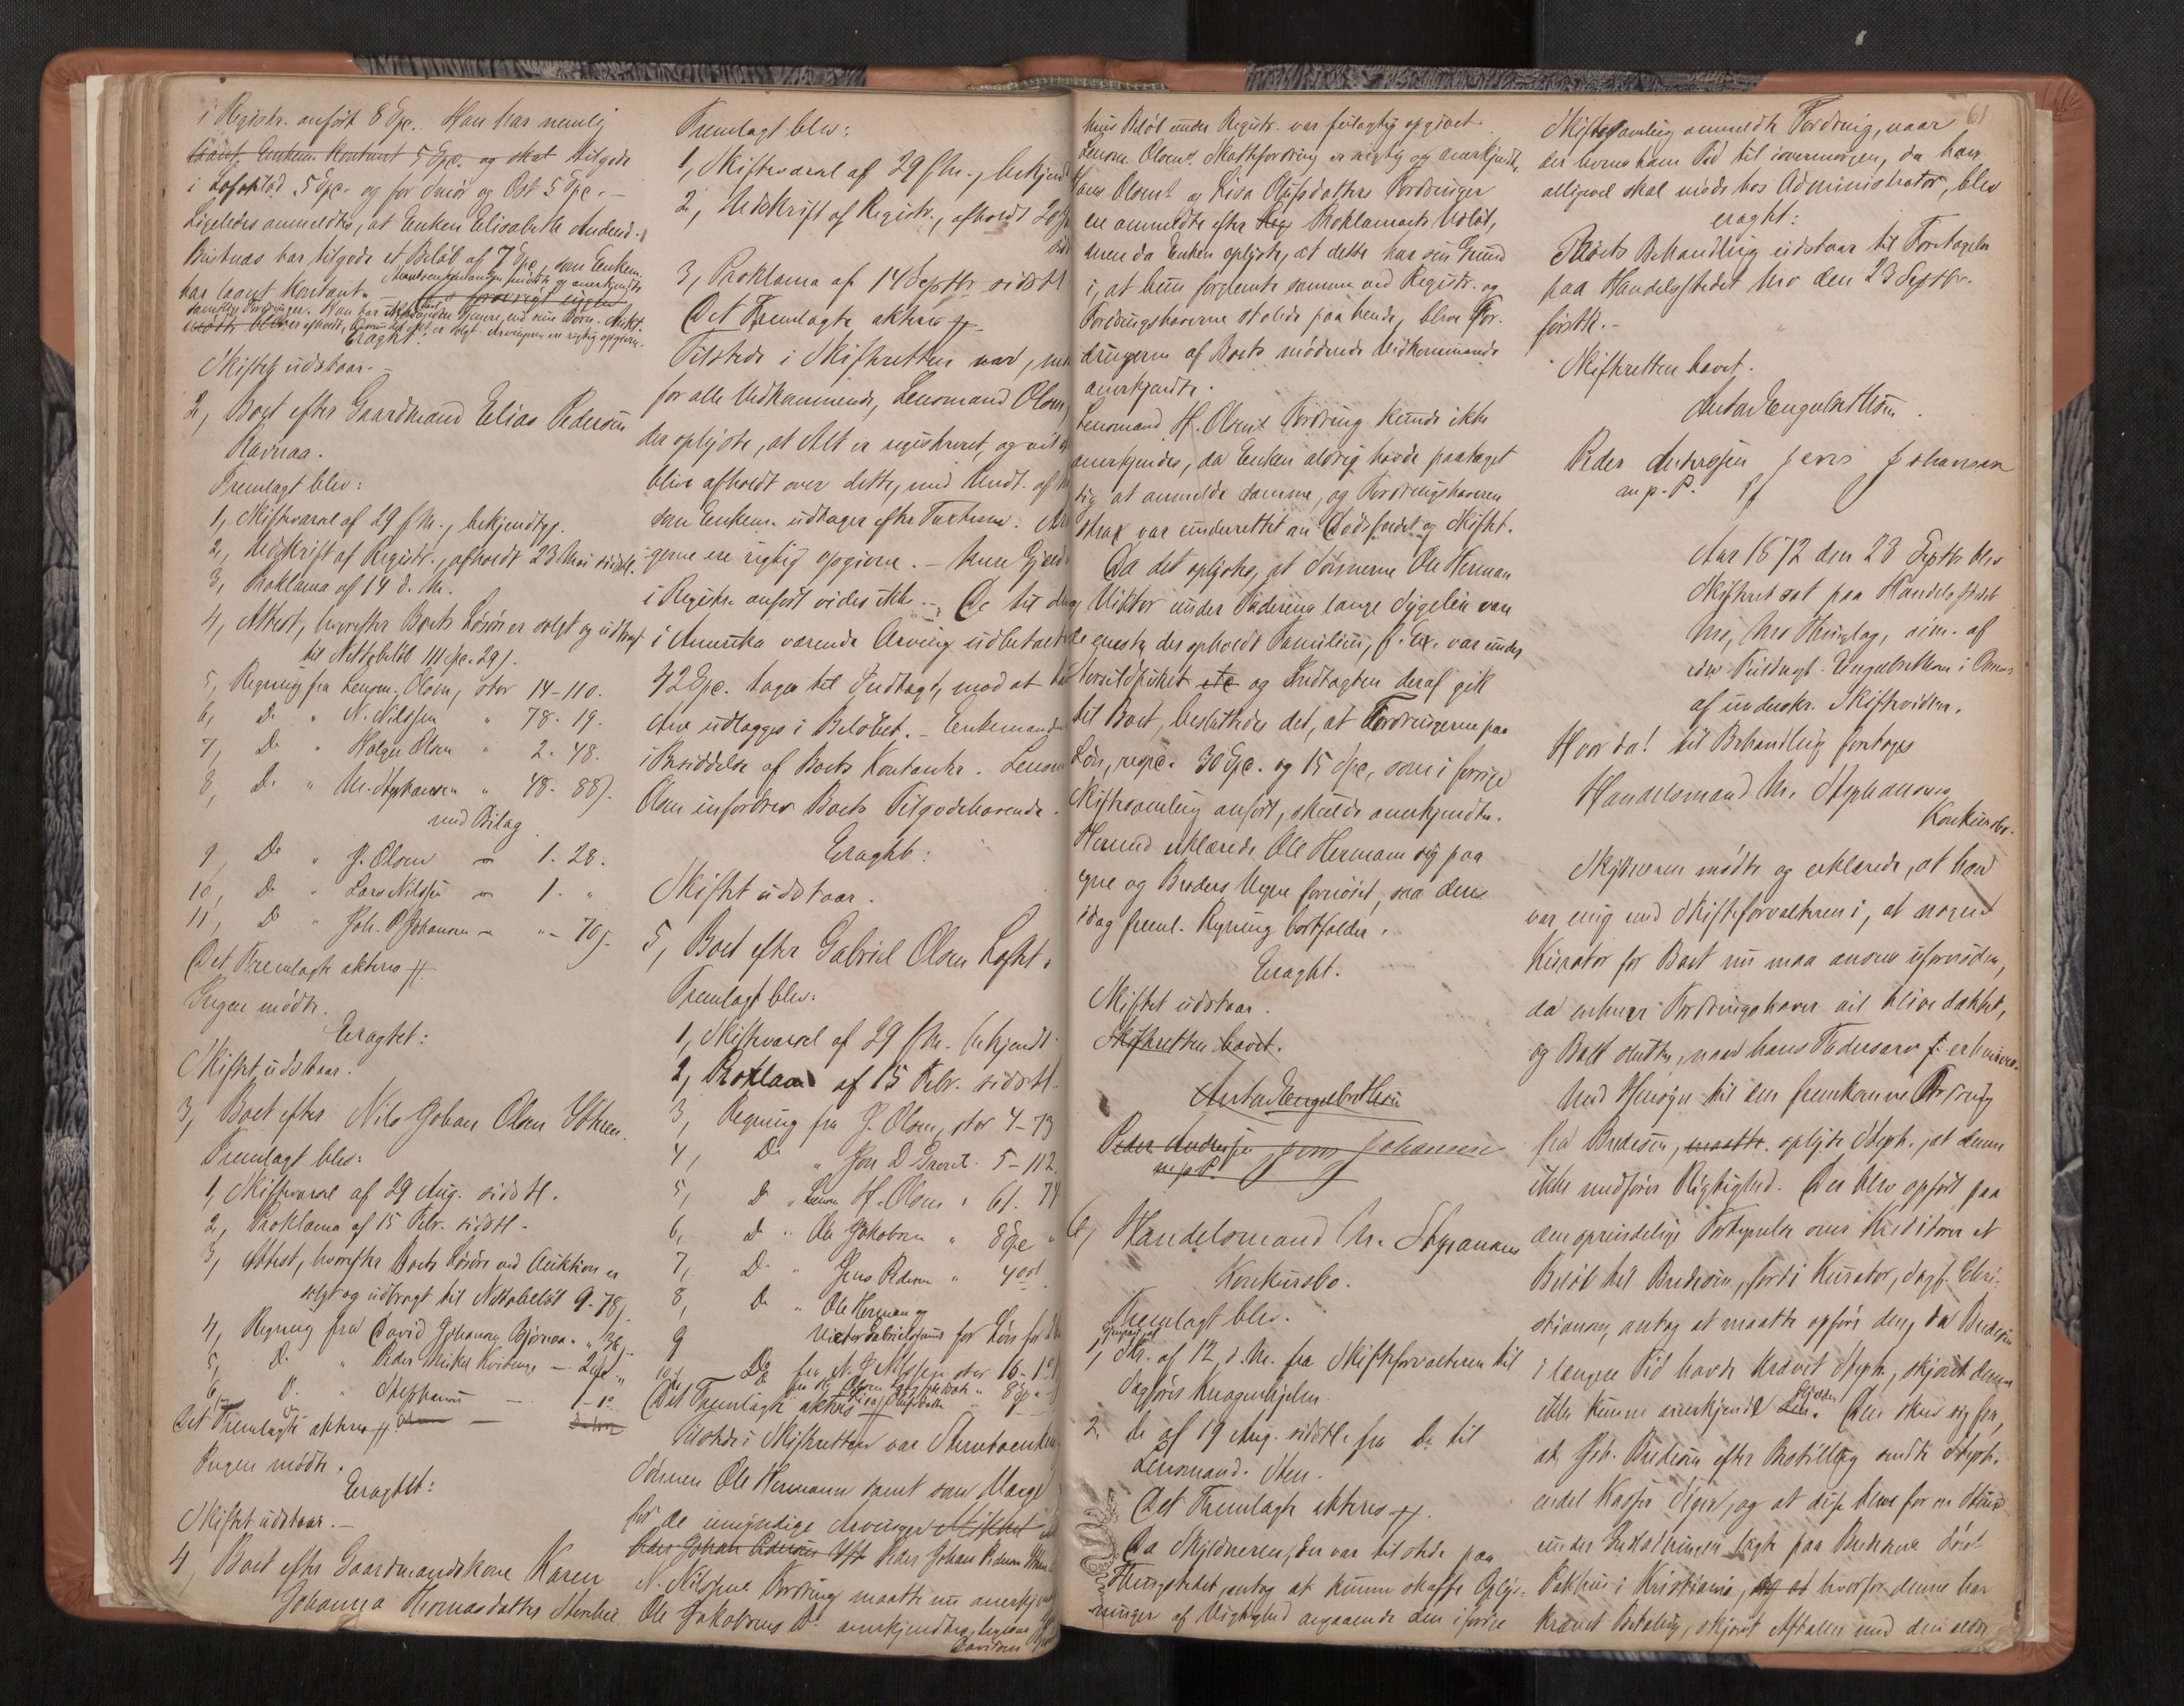 i Registr. anført 8 Spc. Han har nemlig
laant Enkem. Kontant 5 Spc. og skat tilgode
i 5 Spc. og for Smør og Ost 5 Spc. —
Ligeledes anmeldtes, at Enken Elisabeth Andersd.
Bustnes har tilgode et Beløb af 7 Spc., som Enkem.
har laant Kontant.
Eragtt:
Skiftet udstaar. —
2, Boet efter Gaardmand Elias Pedersen
Ravnaa.
Fremlagt blev:
1, Skiftevarsel af 29 f. M., bekjendtgj.
2, Udskrift af Registr., afholdt 23 Mai sidstl.
3, Proklama af 14 d. M.
4, Attest, hvorefter Boets Løsøre er solgt og udbragt
til Nettobeløb 111 Spc. 29 s.
5, Regning fra Lensm. Olsen, stor 14-110.
6, Do " N. Nilssen " 78. 19.
7, Do " Holger Olsen " 2. 48.
8, Do " M. Stephansen " 48. 88).
med Bilag
9, Do " J. Olsen — 1. 28.
10, Do " Lars Nilssen — 1. "
11, Do " Joh. P. Johansen — " - 70).
Det Fremlagte akteres
Ingen mødte.
Eragtet:
Skiftet udstaar.
3, Boet efter Nils Johan Olsen Ytteren.
Fremlagt blev:
1, Skiftevarsel af 29 Aug. sidstl.
2, Proklama af 15 Febr. sidstl.
3, Attest, hvorefter Boets Løsøre ved Auktion er
solgt og udbragt til Nettobeløb 9-78).
4, Regning fra David Johansen Bjørnaa
5, Do " Peder Mikel 2 Spd "
6, Do " Stephansen — 1-
Det Fremlagte akteres
Ingen mødte.
Eragtet:
Skiftet udstaar. —
4, Boet efter Gaardmandskone Karen
Johanna Thomasdatter
Fremlagt blev:
1, Skiftevarsel af 29 f. M., bekjendt
2, Udskrift af Registr., afholdt 20
3, Proklama af 14 Septbr. sidstl.
Det Fremlagte akteres
Tilstede i Skifteretten var,
for alle Vedkommende, Lensmand Olsen,
der oplyste, at Alt er registreret, og vil
blive afholdt over dette, med Undt. af
som Enkem. udtager efter Taxten.
gerne ere rigtig opgivne. —
i Registr. anført vides ikke. —
i Amerika værende Arving udbetalte
42 Spc. tages til Indtægt, mod at
Arv udlægges i Beløbet. — Enkemanden
i Besiddelse af Boets Kontanter. Lensm.
Olsen indfordrer Boets Tilgodehavende.
Eragtt:
Skiftet udstaar.
5, Boet efter Gabriel Olsen
Fremlagt blev:
1, Skiftevarsel af 29 f. M. bekjendt
2, Proklama af 15 Febr. sidstl.
3, Regning fra J. Olsen, stor 4-73
4, Do " Jon D 5-112.
5, Do " Lensm H. Olsen " 61. 74
6, Do " Ole Jakobsen " 8 Spc "
7, Do " Jens Pedersen " 4 ort
8, Do " Ole Herman og
9 Viktor Gabrielssøns for Løn for
10, Do fra N. J. Nilssen stor 16-
Det Fremlagte akteres
Tilstede i Skifteretten var Stervboenken
Sønnen Ole Hermann samt som Værge
for de umyndige Arvinger
Peder Johan Pedersen
N. Nilssens Fordring maatte nu anerkjendes
Ole Jakobsens Do anerkjendtes, ligesaa
hvis Beløb under Registr. var feilagtig opgivet.
Lensm. Olsens Skattefordring er rigtig og anerkjendt,
Hans Olsens og Lisa Olufsdatters Fordringer
ere anmeldte efter Proklamaets Udløb,
men da Enken oplyste, at dette har sin Grund
i, at hun forglemte samme ved Registr. og
Fordringshaverne stolede paa hende, blive For-
dringerne af Boets mødende Vedkommende
anerkjendte.
Lensmand H. Olsens Fordring kunde ikke
anerkjendes, da Enken aldrig havde paataget
sig at anmelde samme, og Fordringshaveren
strax var underrettet om Dødsfaldet og Skiftet.
Da det oplystes, at Sønnerne Ole Herman
og Viktor under Faderens lange Sygeleie vare
de eneste, der opholdt Familien, f. Ex. var under
Storsildfisket etc og Indtægten deraf gik
til Boet, besluttedes det, at Fordringerne paa
Løn, resp. 30 Spc. og 15 Spc., som i forrige
Skiftesamling anført, skulde anerkjendtes.
Hermed erklærede Ole Hermann sig paa
egne og Broders Vegne fornøiet, saa deres
idag freml. Regning bortfalder.
Eragtt.
Skiftet udstaar.
Skifteretten hævet.
Anton Engelbrethsen
Peder Andersen Jens Johansen
m. p. P.
6, Handelsmand M. Stephansens
Konkursbo.
Fremlagt blev.
1, Skr. af 12, d. M. fra Skifteforvalteren til
Sagfører Knagenhjelm.
2. Do af 19 Aug. sidstl. fra Do til
Lensmand. Sten.
Det Fremlagte akteres
Da Skyldneren, der var tilstede paa
Thingstedet, antog at kunne skaffe Oplys-
ninger af Vigtighed angaaende den i forrige
61
Skiftesamling anmeldte Fordring, naar
der levnes ham Tid til iovermorgen, da han
alligevel skal møde hos Administrator, blev
eragtt:
Boets Behandling udstaar til Foretagelse
paa Handelsstedet Mo den 23 Septbr.
førstk. —
Skifteretten hævet.
Anton Engelbrethsen.
Peder Andersen Jens Johansen
m. p. P.
Aar 1872 den 23 Septbr blev
Skifteret sat paa Handelsstedet
Mo, Mo Thinglag, adm. af
edsv. Fuldmægt. Engelbrethsen i
af underskr. Skiftevidner.
Hvor da! til Behandling foretoges
Handelsmand M. Stephansens
Konkursbo.
Skyldneren mødte og erklærede, at han
var enig med Skifteforvalteren i, at nogen
Kurator for Boet nu maa ansees ufornøden,
da enhver Fordringshaver vil blive dækket,
og Boet sluttes, naar hans Fædrearv er
Med Hensyn til den fremkomne Fordring
fra Bredesen, maatte oplyste Steph., at denne
ikke medfører Rigtighed. Der blev opført paa
den oprindelige Fortegnelse over Kreditorer et
Beløb til Bredesen, fordi Kurator, Sagf. Chri-
stiansen, antog at maatte opføre den, da Bredesen
i længere Tid havde krævet Steph., skjøndt denne
ikke kunne anerkjende Gjælden. Den skrev sig fra,
at Joh. Bredesen efter Bestilling sendte Steph.
endel Kasser Sigar, og at disse bleve for en Stund
under
Pakhus i Kristiania, og at hvorfor denne har
krævet Betaling, skjønt Aftalen med den